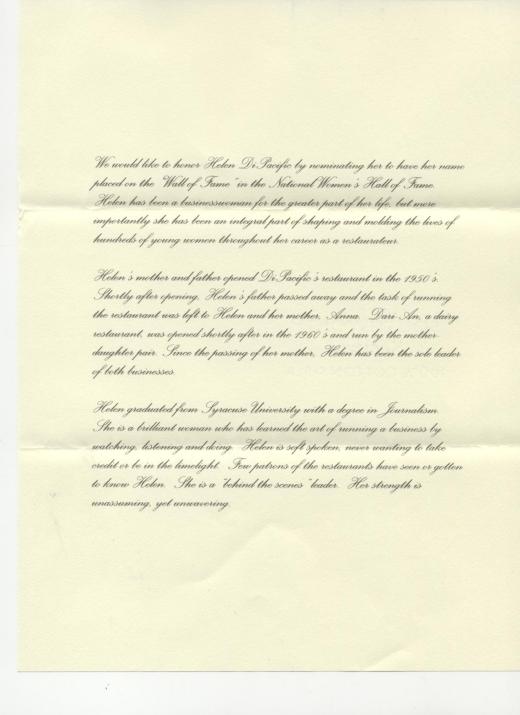 We would like to honor Helen DiPacific by nominating her to have her name
placed on the "Wall of Fame" in the National Women's Hall of Fame.
Helen has been a businesswoman for the greater part of her life, but more
importantly she has been an integral part of shaping and molding the lives of
hundreds of young women throughout her career as a restaurateur.
Helen's mother and father opened DiPacific's restaurant in the 1950's.
Shortly after opening, Helen's father passed away and the task of running
the restaurant was left to Helen and her mother, Anna. Dari-An, a dairy
restaurant, was opened shortly after in the 1960's and run by the mother
daughter pair. Since the passing of her mother, Helen has been the sole leader
of both businesses.
Helen graduated from Syracuse University with a degree in Journalism.
She is a brilliant woman who has learned the art of running a business by
watching, listening and doing. Helen is soft spoken, never wanting to take
credit or be in the limelight. Few patrons of the restaurants have seen or gotten
to know Helen. She is a "behind the scenes" leader. Her strength is
unassuming, yet unwavering.